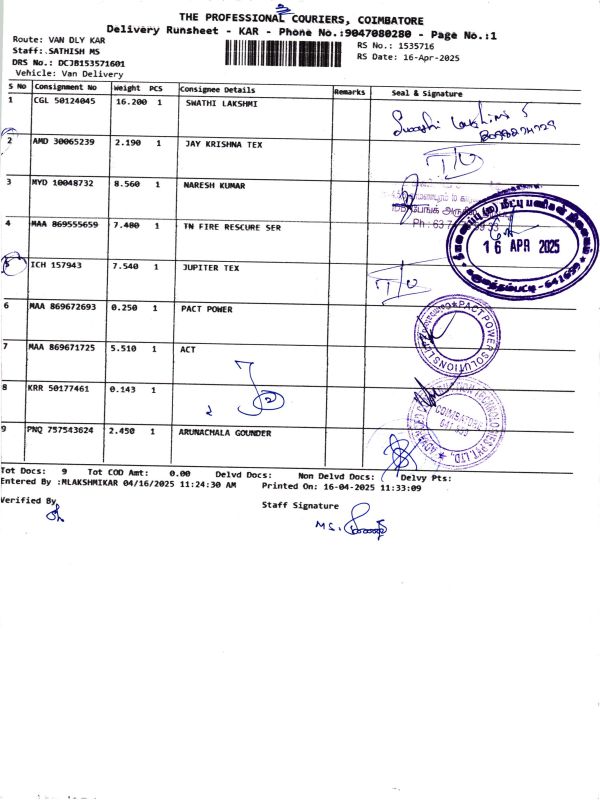 THE PROFESSIONAL COURIERS, COIMBATORE
Delivery Runsheet - KAR - Phone No.:9047080280 - Page No.:1
Route: VAN DLY KAR
RS No.: 1535716
Staff: SATHISH MS
RS Date: 16-Apr-2025
DRS No.: DCJB153571601
Vehicle: Van Delivery
S No Consignment No Weight PCS Consignee Details Remarks Seal & Signature
1 CGL 50124045 16.200 1 SWATHI LAKSHMI
2 AMD 30065239 2.190 1 JAY KRISHNA TEX
3 MYD 10048732 8.560 1 NARESH KUMAR
4 MAA 869555659 7.480 1 TN FIRE RESCURE SER
16 APR 2025
5 ICH 157943 7.540 1 JUPITER TEX
6 MAA 869672693 0.250 1 PACT POWER
PACT POWER SOLUTIONS
7 MAA 869671725 5.510 1 ACT
8 KRR 50177461 0.143 1
2
COIMBATORE
9 PNQ 757543624 2.450 1 ARUNACHALA GOUNDER
Tot Docs: 9 Tot COD Amt: 0.00 Delvd Docs: Non Delvd Docs: Delvy Pts:
Entered By :MLAKSHMIKAR 04/16/2025 11:24:30 AM Printed On: 16-04-2025 11:33:09
Verified By
Staff Signature